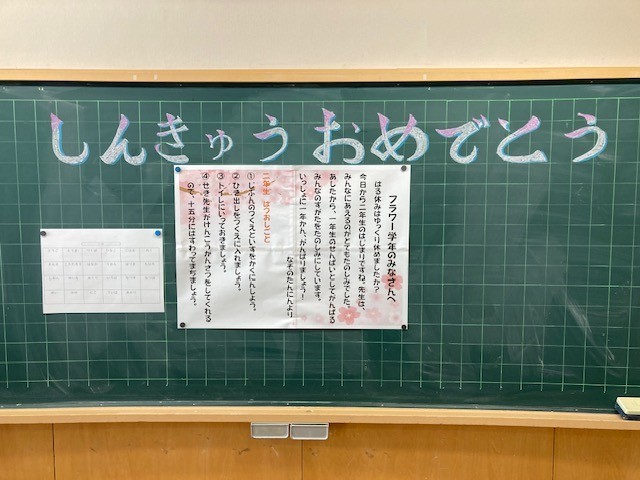 しんきゅうおめでとう
フラワー学年のみなさんへ
はる休みはゆっくり休めましたか？
今日から二年生のはじまりですね。先生は、
みんなにあえるのがとてもたのしみでした。
あしたから、一年生のせんぱいとしてがんばる
みんなのすがたをたのしみにしています。
いっしょに一年かん、がんばりましょう！
なぞのたんにんより
二年生 はつおしごと
①じぶんのつくえといすをかくにんしよう。
②ひき出しをつくえに入れましょう。
③トイレにいっておきましょう。
④せき先生がけんこうかんさつをしてくれる
ので、十五分にはすわってまちましょう。